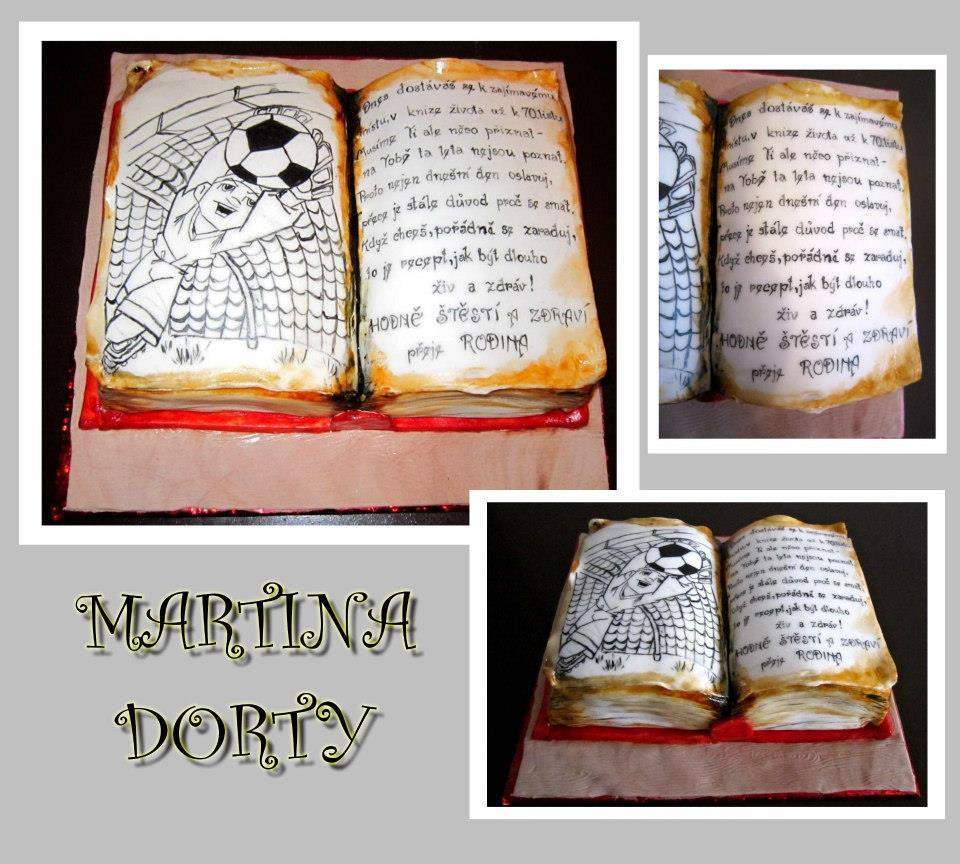 Dnes dostáváš se k zajímavému
místu, v knize života už k 70.listu
Musíme Ti ale něco přiznat-
na Tobě ta léta nejsou poznat.
Proto nejen dnešní den oslavuj,
přece je stále důvod proč se smát.
Když chceš, pořádně se zaraduj,
to je recept, jak být dlouho
živ a zdráv!
HODNĚ ŠTĚSTÍ A ZDRAVÍ
přeje RODINA
Dnes dostáváš se k zajímavému
místu, v knize života už k 70.listu
Musíme Ti ale něco přiznat-
na Tobě ta léta nejsou poznat.
Proto nejen dnešní den oslavuj,
přece je stále důvod proč se smát.
Když chceš, pořádně se zaraduj,
to je recept, jak být dlouho
živ a zdráv!
HODNĚ ŠTĚSTÍ A ZDRAVÍ
přeje RODINA
dostáváš se k zajímavému
knize života už k 70.listu
Musíme Ti ale něco přiznat-
na Tobě ta léta nejsou poznat.
Proto nejen dnešní den oslavuj,
přece je stále důvod proč se smát.
Když chceš, pořádně se zaraduj,
to je recept, jak být dlouho
živ a zdráv!
HODNĚ ŠTĚSTÍ A ZDRAVÍ
přeje RODINA
MARTINA
DORTY